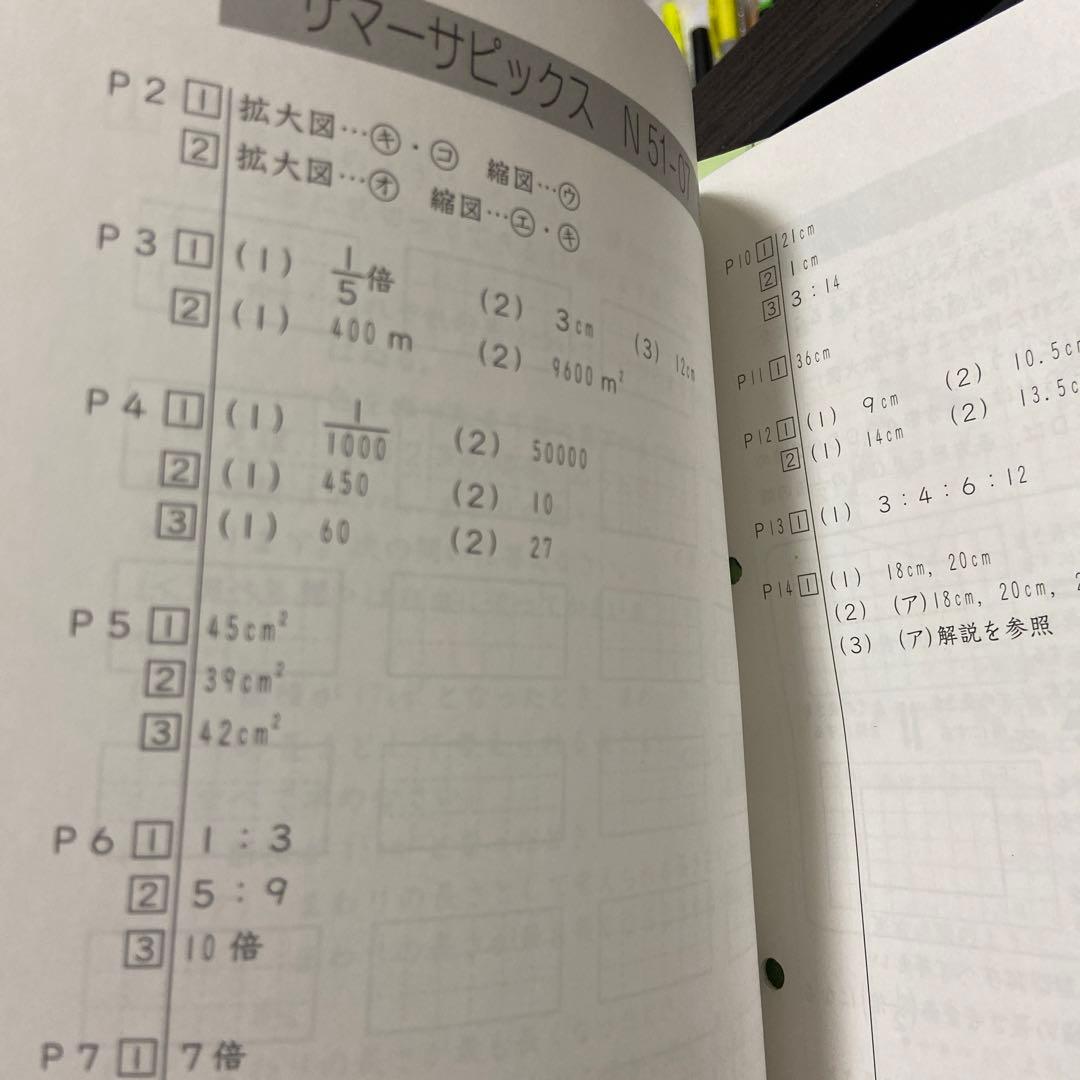 サマーサピックス N51-07
P2 1 拡大図…㋖・㋙ 縮図…㋒
2 拡大図…㋔ 縮図…㋓・㋖
P3 1 (1) 1/5倍 (2) 3cm (3) 12cm
2 (1) 400m (2) 9600m²
P4 1 (1) 1/1000 (2) 50000
2 (1) 450 (2) 10
3 (1) 60 (2) 27
P5 1 45cm²
2 39cm²
3 42cm²
P6 1 1:3
2 5:9
3 10倍
P7 1 7倍
P10 1 21cm
2 1cm
3 3:14
P11 1 36cm
P12 1 (1) 9cm (2) 10.5cm
2 (1) 14cm (2) 13.5c
P13 1 (1) 3:4:6:12
P14 1 (1) 18cm, 20cm
(2) (ア)18cm, 20cm,
(3) (ア)解説を参照